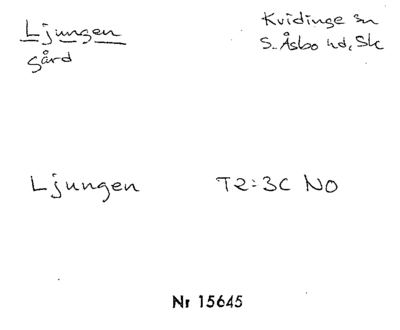 Ljungen
gård
Kvidinge sn
S. Åsbo hd, Sk
Ljungen T2:3C NO
Nr 15645